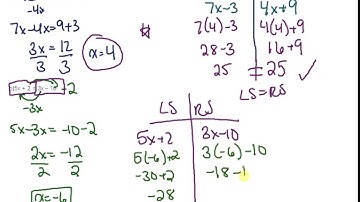 -4x
7x-4x=9+3
3x = 12
3 3
x=4
-2
-3x
5x-3x=-10-2
2x = -12
2 2
x=-6
7x-3 4x+9
7(4)-3 4(4)+9
28-3 16+9
25 = 25 ✓
LS=RS
LS RS
5x+2 3x-10
5(-6)+2 3(-6)-10
-30+2 -18-1
-28